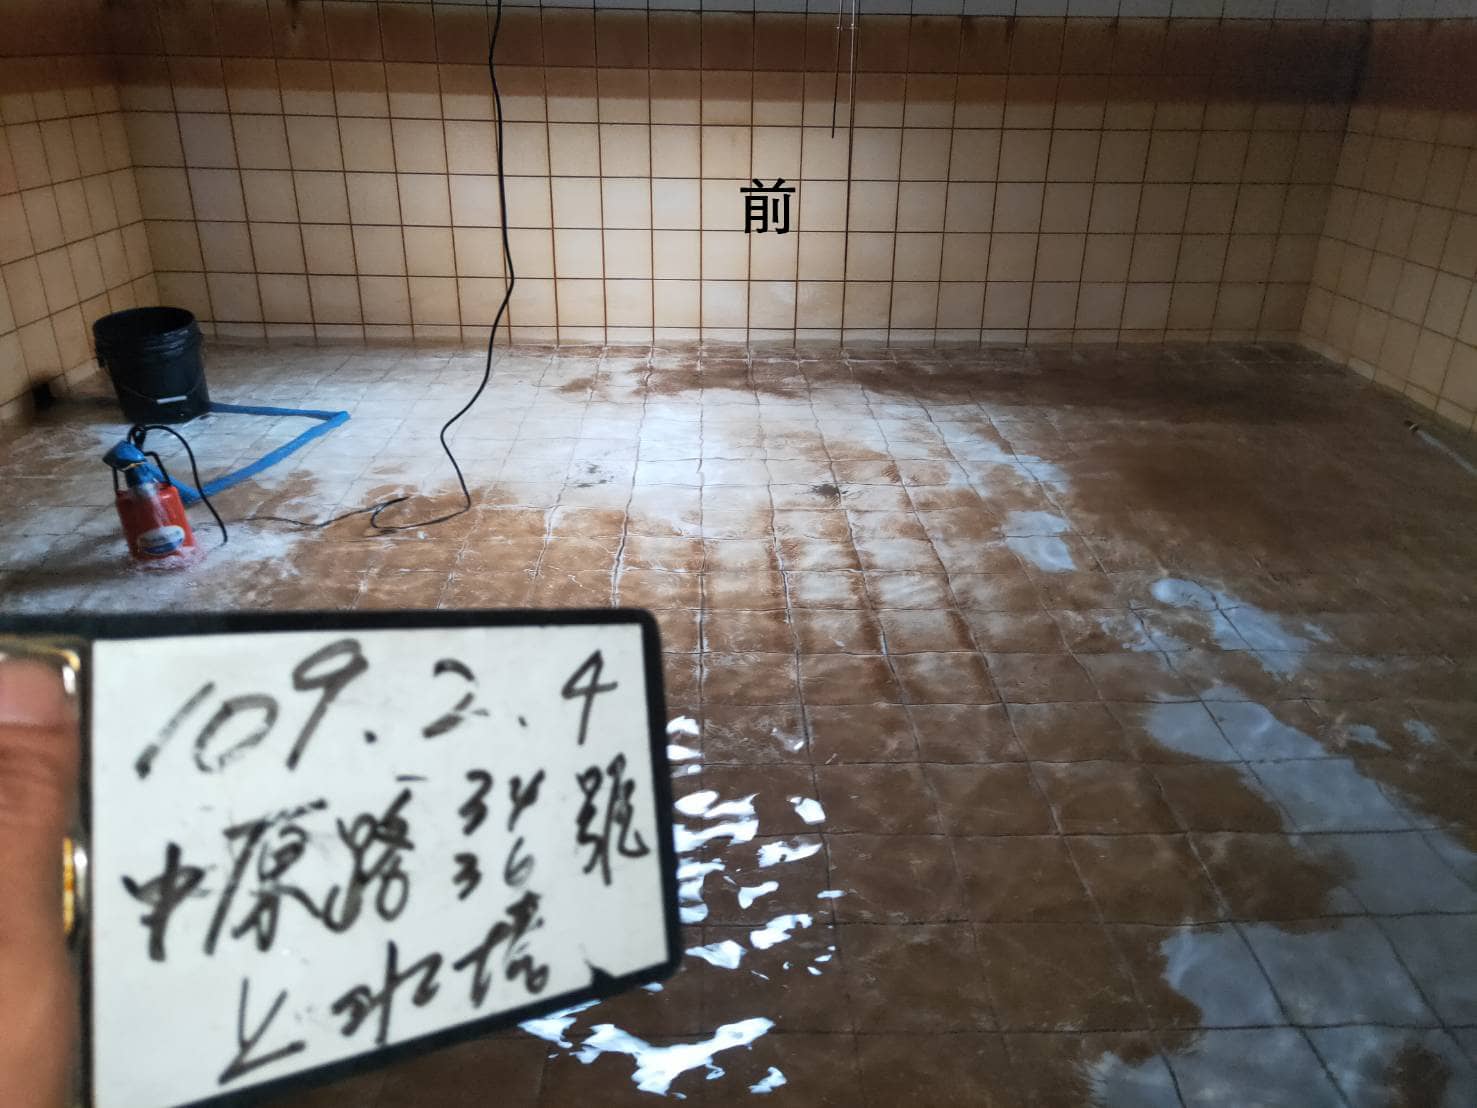 前
109.2.4
中原路 34 號
36
上水塔